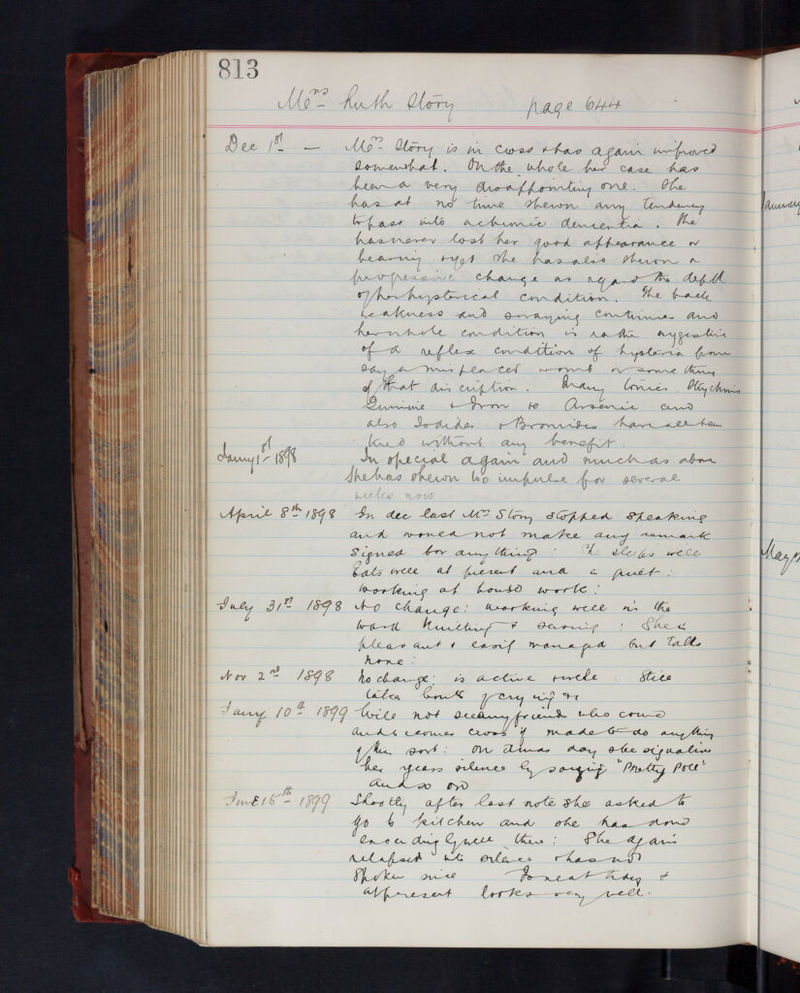 813
Mrs Ruth Story page 644
Dec 1st — Mrs Story is in cross & has again improved
somewhat. On the whole her case has
been a very disappointing one. She
has at no time shewn any tendency
to pass into a chronic dementia. She
has never lost her good appearance or
bearing she has also shewn a
progressive change as regard the depth
of her hysterical condition. The back
weakness and swaying continues and
her whole condition is rather suggestive
of a reflex condition of hysteria from
say a misplaced womb or some thing
of that discription. Many tonics. Strychnine
Quinine & Iron & Arsenic and
also Iodides & Bromides have all been
tried without any benefit.
Jany 1st 1898 In special again and much as above
She has shewn no impulse for several
weeks now
April 8th 1898 In dec last Mrs Story stopped speaking
and would not make any remark
signed for any thing : She sleeps well
Eats well at present and is quiet :
working at house work :
July 31st 1898 No change : working well in the
ward knitting & sewing : She is
pleasant & easily managed but talks
none :
Nov 2nd 1898 No change : is active Still
takes bouts of crying &c
Jany 10th 1899 Will not see any friends who come
and becomes cross if made to do anything
of the sort : On Xmas day she signalised
her years silence by saying "Pretty Poll"
and so on
June 15th 1899 Shortly after last note she asked to
go to kitchen and she has done
exceedingly well there : She again
relapsed into silence & has not
spoken since Is neat tidy &
at present looks very well.
January
May